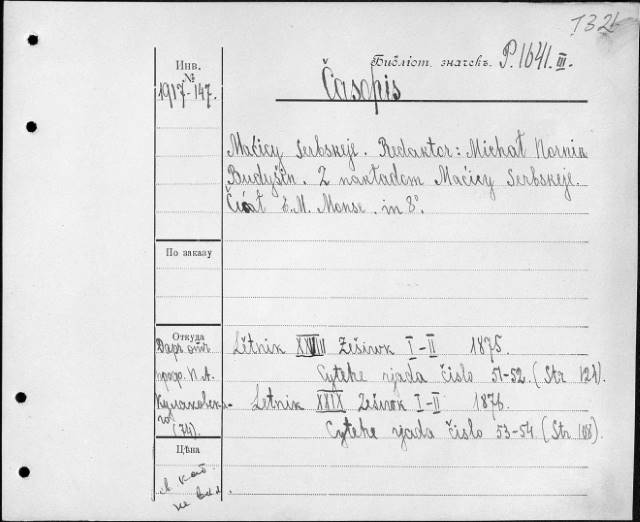 T 321
Инв.
№
1917-147.
Библіот. значекъ. P.1641.III.
Časopis
Maćicy Serbskeje. Redaktor: Michał Hórnik
Budyšin. Z nakładom Maćicy Serbskeje.
Ćišćał E. M. Monse. in 8°.
По заказу
Откуда
Даръ отъ
проф. П. А.
Кулаковска-
го
(74).
Lětnik XXVIII Zešiwk I-II 1875.
Cyłeho rjada čisło 51-52. (Str 121).
Letnik XXIX Zešiwk I-II 1876.
Cyłeho rjada čisło 53-54 (Str 108).
Цѣна
в кат.
не вкл.